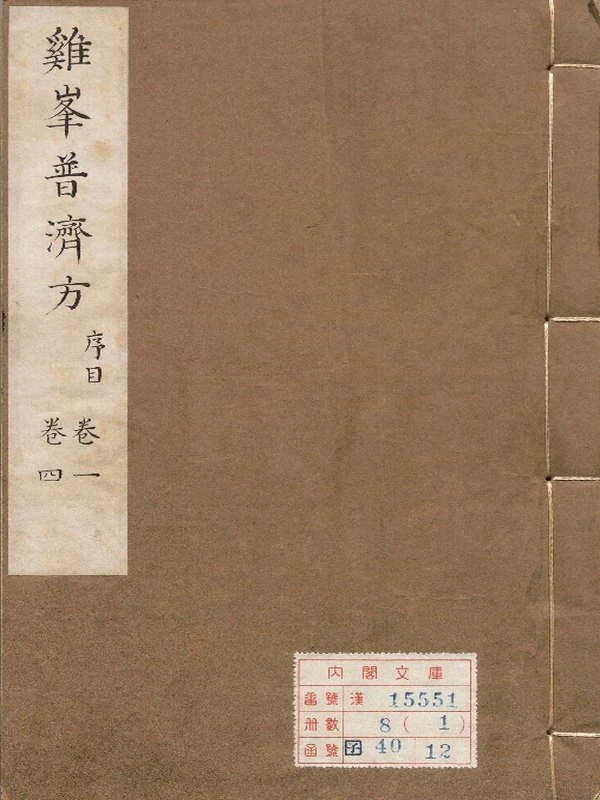 雞峯普濟方
序目
卷一
卷四
內閣文庫
番號 漢 15551
冊數 8 ( 1 )
函號 子 40 12